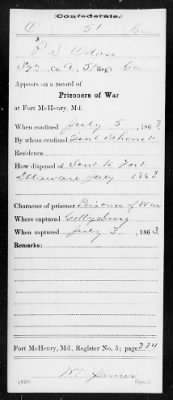 Confederate.
51
Co. A, 51 Reg't Ga
Appears on a record of
Prisoners of War
at Fort McHenry, Md.
When confined July 5, 1863
By whom confined Genl Schenck
Residence
How disposed of Sent to Fort
Delaware July 1863
Character of prisoner Prisoner of War
Where captured Gettysburg
When captured July 3, 1863
Remarks:
Fort McHenry, Md., Register No. 5; page 234